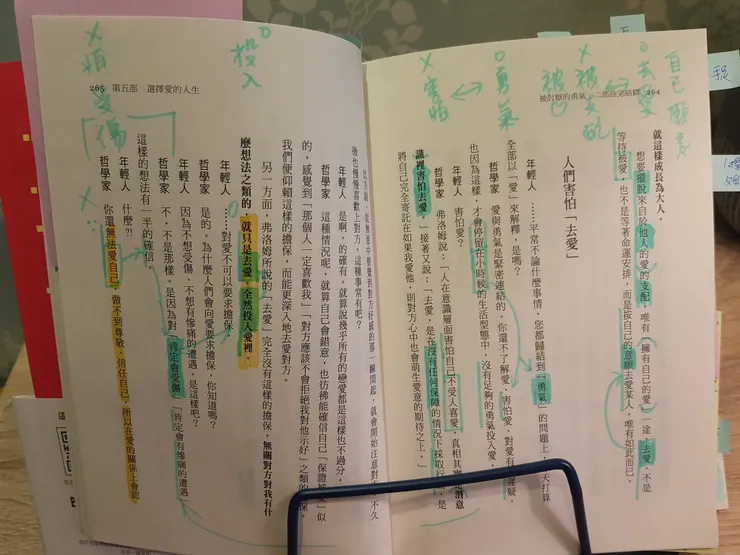 自己願意
○去愛
×被愛的
被
○勇氣
↔
×害怕
被討厭的勇氣 二部曲完結篇 264
就這樣成長為大人。
想要擺脫來自於他人的愛的支配,唯有「擁有自己的愛」一途。去愛。不是
等待被愛,也不是等著命運安排,而是按自己的意願去愛某人。唯有如此而已。
人們害怕「去愛」
年輕人 ……平常不論什麼事情,您都歸結到「勇氣」的問題上,
天打算
全部以「愛」來解釋,是嗎?
哲學家 愛與勇氣是緊密連結的。你還不了解愛、害怕愛、對愛有
遲疑,
也因為這樣,才會停留在小時候的生活型態中,沒有足夠的勇氣投入愛。
年輕人 害怕愛?
哲學家 弗洛姆說:「人在意識層面害怕自己不受人喜愛,真相其實是潛意
識裡害怕去愛。」接著又說:「去愛,是在沒有任何保障的情況下採取行動,是
將自己完全寄託在如果我愛他,則對方心中也會萌生愛意的期待之上。」
○投入
×怕受傷
265 第五部 選擇愛的人生
察覺到對方好感的那一瞬間起,就會開始注意對方,不久
後也慢慢喜歡上對方,這種事常有吧?
年輕人 是啊,的確有,就算說幾乎所有的戀愛都是這樣也不過分。
哲學家 這種情況呢,就算自己會錯意,也彷彿能確信自己「保證被愛」似
的,感覺到「那個人一定喜歡我」「對方應該不會拒絕我對他示好」之類的
保。
我們便仰賴這樣的擔保,而能更深入地去愛對方。
另一方面,弗洛姆所說的「去愛」完全沒有這樣的擔保。無關對方對我有什
麼想法之類的,就只是去愛。全然投入愛裡。
年輕人 ……對愛不可以要求擔保。
哲學家 是的。為什麼人們會向愛要求擔保,你知道嗎?
年輕人 因為不想受傷、不想有慘痛的遭遇。是這樣吧?
哲學家 不,不是那樣。是因為對「肯定會受傷」「肯定會有慘痛的遭遇」
這樣的想法有一半的確信。
年輕人 什麼?!
哲學家 你還無法愛自己,做不到尊敬、信任自己。所以在愛的關係上會認